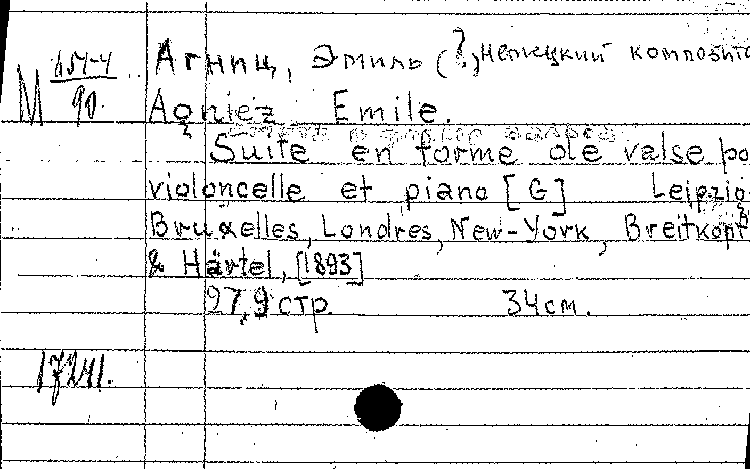 М 154-4
90.
Агниц, Эмиль (?, немецкий композито
Agniez Emile.
Suite en forme de valse po
violoncelle et piano [G] Leipzig
Bruxelles, Londres, New-York, Breitkopf
& Härtel, [1893]
97,9 стр 34см.
17241.